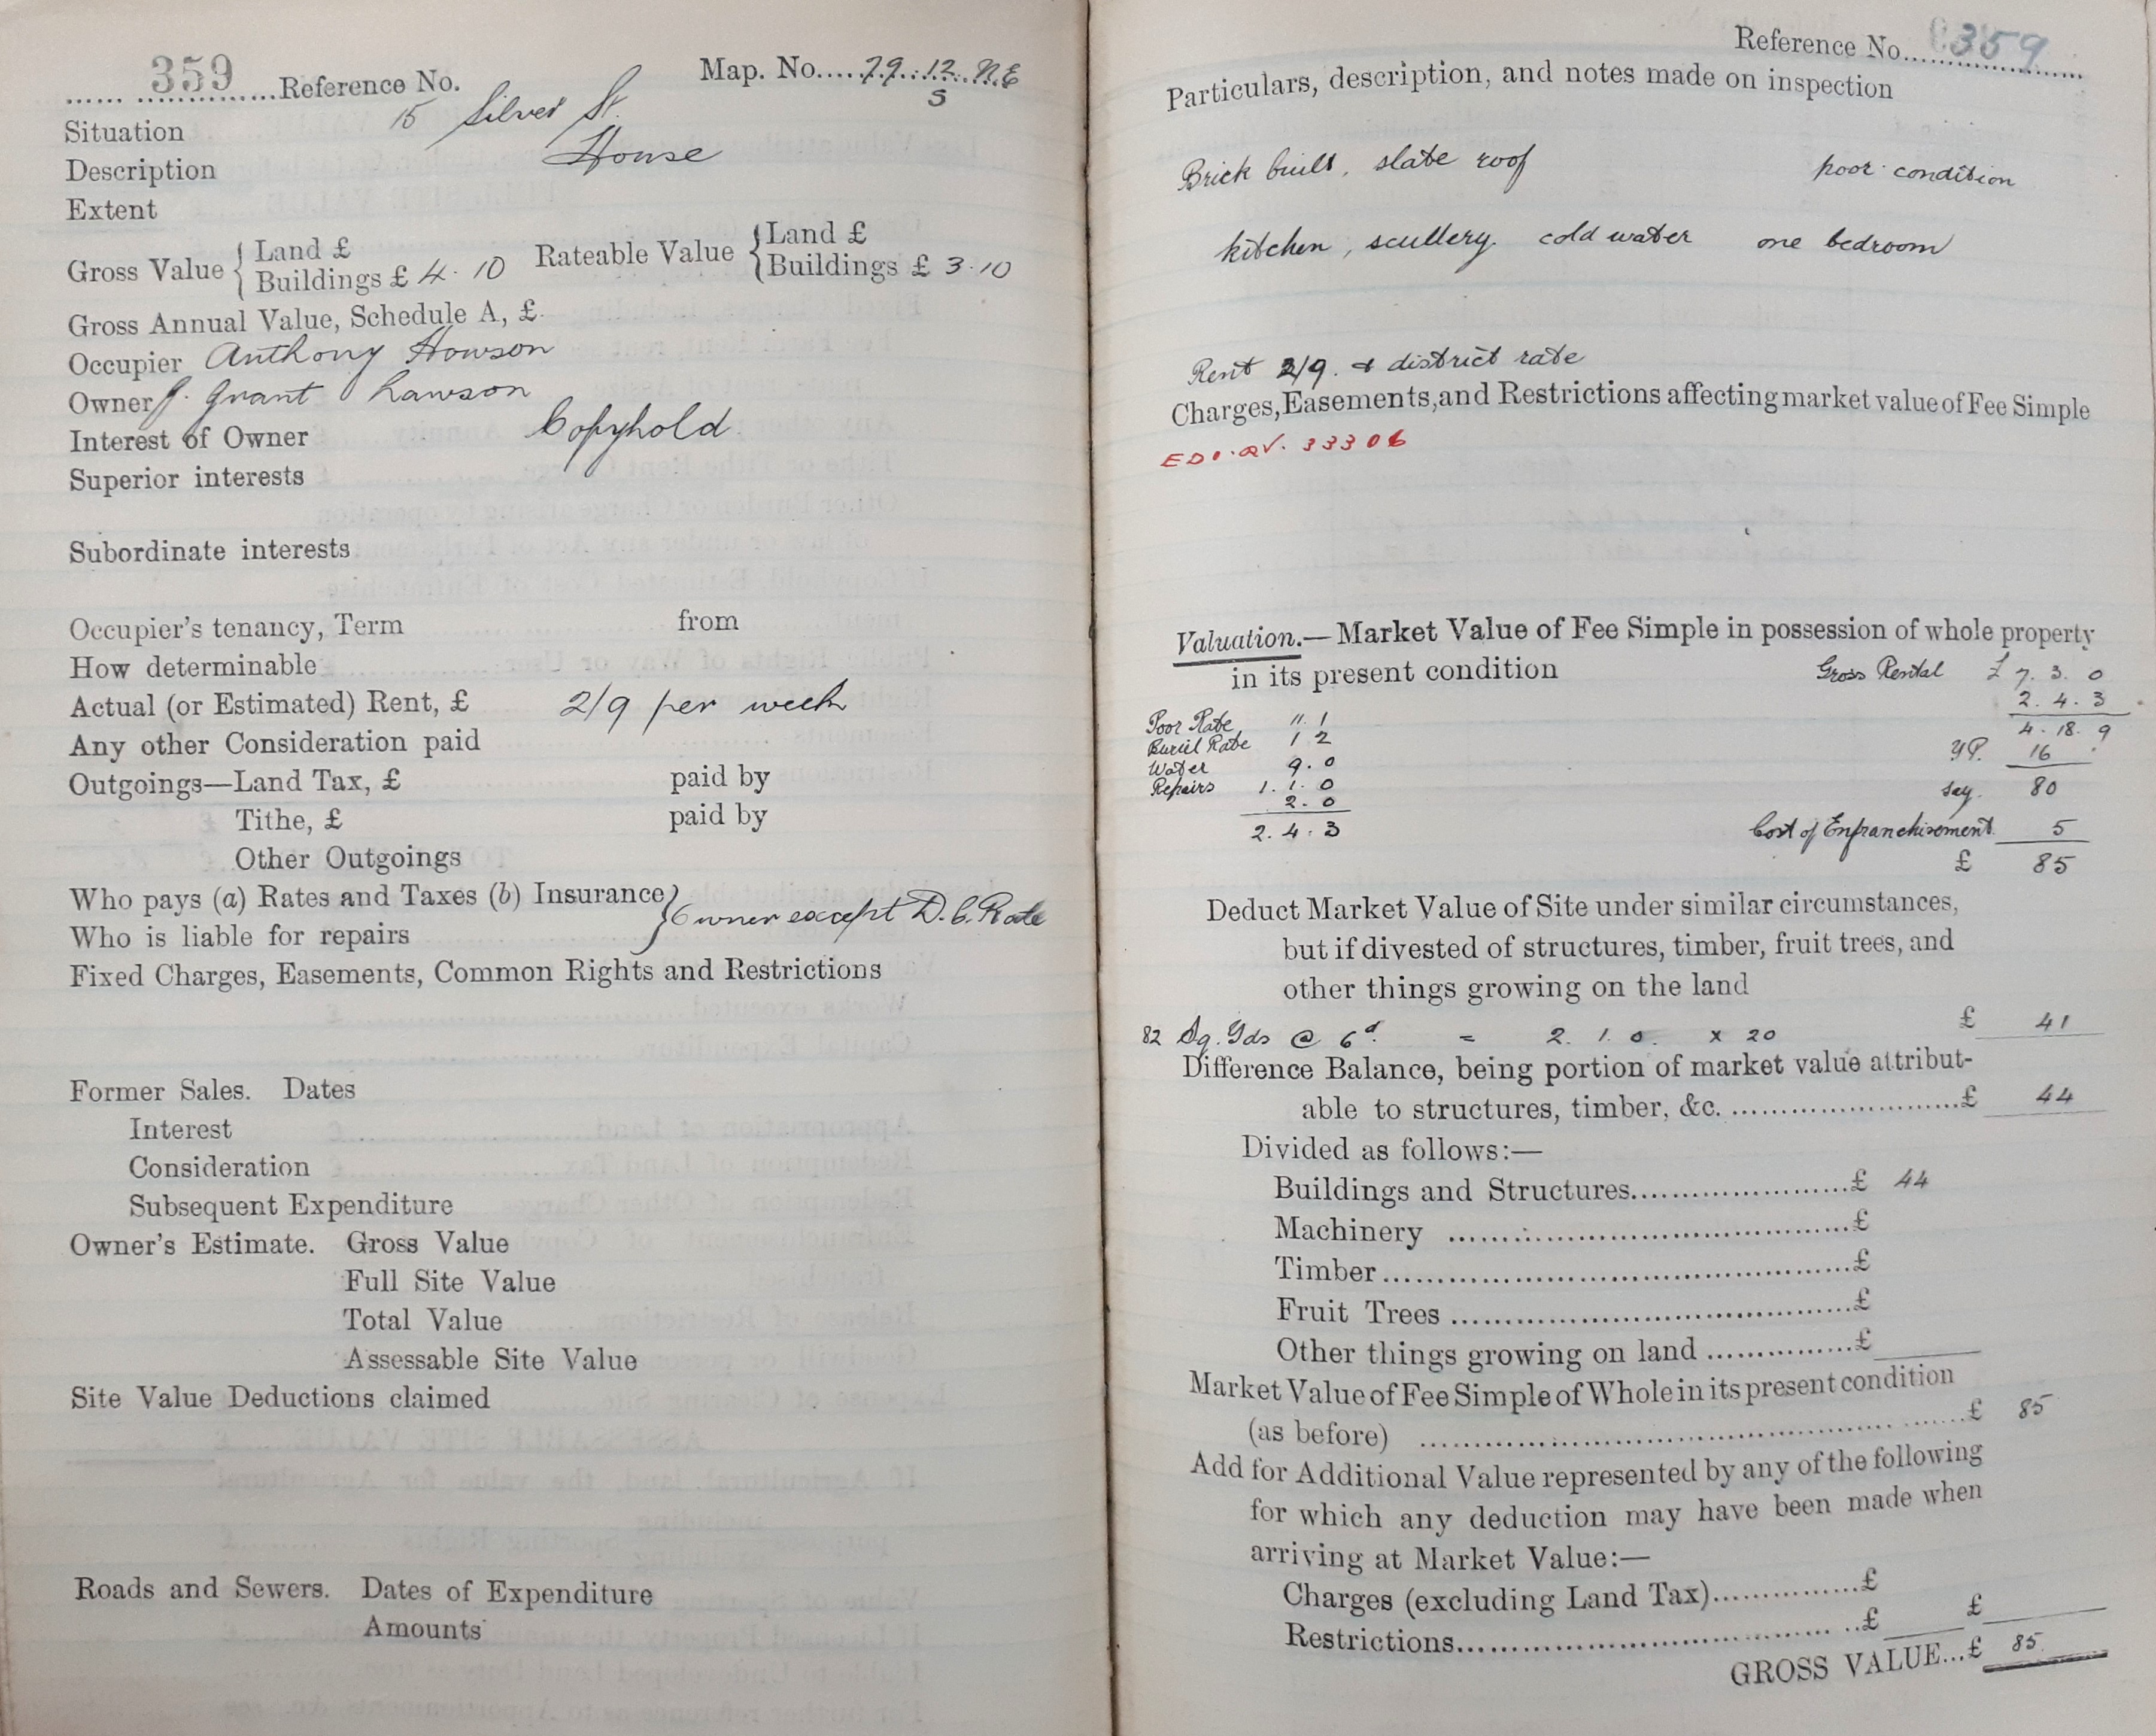 359 Reference No. Map. No. 79. 12. N.E
5
Situation 15 Silver St.
Description House
Extent
Gross Value { Land £ Rateable Value { Land £
Buildings £ 4. 10 Buildings £ 3. 10
Gross Annual Value, Schedule A, £
Occupier Anthony Howson
Owner J. Grant Lawson
Interest of Owner Copyhold
Superior interests
Subordinate interests
Occupier's tenancy, Term from
How determinable
Actual (or Estimated) Rent, £ 2/9 per week
Any other Consideration paid
Outgoings—Land Tax, £ paid by
Tithe, £ paid by
Other Outgoings
Who pays (a) Rates and Taxes (b) Insurance } Owner except D. C. Rate
Who is liable for repairs
Fixed Charges, Easements, Common Rights and Restrictions
Former Sales. Dates
Interest
Consideration
Subsequent Expenditure
Owner's Estimate. Gross Value
Full Site Value
Total Value
Assessable Site Value
Site Value Deductions claimed
Roads and Sewers. Dates of Expenditure
Amounts
Reference No. 359
Particulars, description, and notes made on inspection
Brick built, slate roof poor condition
kitchen, scullery. cold water one bedroom
Rent 2/9. & district rate
Charges, Easements, and Restrictions affecting market value of Fee Simple
33306
Valuation.—Market Value of Fee Simple in possession of whole property
in its present condition Gross Rental £ 7. 3. 0
2. 4. 3
Poor Rate 11. 1 4. 18. 9
Buriel Rate 1 2 Y.P. 16
Water 9. 0
Repairs 1. 1. 0 say. 80
2. 0
2. 4. 3 Cost of Enfranchisement 5
£ 85
Deduct Market Value of Site under similar circumstances,
but if divested of structures, timber, fruit trees, and
other things growing on the land
82 Sq. Yds @ 6d. = 2. 1. 0. x 20 £ 41
Difference Balance, being portion of market value attribut-
able to structures, timber, &c. £ 44
Divided as follows:—
Buildings and Structures £ 44
Machinery £
Timber £
Fruit Trees £
Other things growing on land £
Market Value of Fee Simple of Whole in its present condition
(as before) £ 85
Add for Additional Value represented by any of the following
for which any deduction may have been made when
arriving at Market Value:—
Charges (excluding Land Tax) £
Restrictions £ £
GROSS VALUE...£ 85